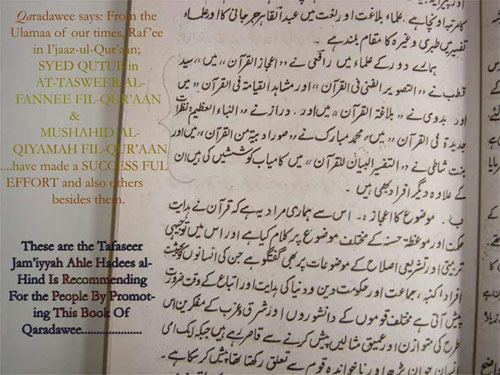 Qaradawee says: From the
Ulamaa of our times, Raf'ee
in I'jaaz-ul-Qur'aan;
SYED QUTUB in
AT-TASWEER AL-
FANNEE FIL-QUR'AAN
&
MUSHAHID-AL-
QIYAMAH FIL-QUR'AAN
....have made a SUCCESS FUL
EFFORT and also others
besides them.
These are the Tafaseer
Jam'iyyah Ahle Hadees al-
Hind Is Recommending
For the People By Promot-
ing This Book Of
Qaradawee....................
کا مرتبہ اونچا ہے۔ علماء بلاغت اور لغت میں عبدالقاہر جرجانی کا اور علماء
تفسیر میں طبری وغیرہ کا مقام بلند ہے۔
ہمارے دور کے علماء میں رافعی نے «اعجاز القرآن» میں «سید
قطب نے «التصویر الفنی فی القرآن» اور مشاہد القیامۃ فی القرآن» میں
اور بدوی نے «بلاغۃ القرآن» میں اور۔ دراز نے «النباء العظیم نظرات
جدیدۃ فی القرآن» میں، محمد مبارک نے «صور ادبیۃ من القرآن» میں اور
بنت شاطی نے «التفسیر البیانی للقرآن» میں کامیاب کوششیں کی ہیں ان
کے علاوہ دیگر افراد بھی ہیں۔
ب۔ موضوع کا اعجاز :۔ اس سے ہماری مراد یہ ہے کہ قرآن نے ہدایت
حکمت اور موعظۂ حسنہ کے مختلف موضوع پر کلام کیا ہے اور اس میں توجیہی
تربیتی اور تشریعی اصلاح کے موضوعات پر بھی گفتگو ہے جن کی انسانوں کو بحیثیت
افراد، کنبہ، جماعت اور حکومت دین و دنیا کی ہدایت اور اتباع کے وقت ضرورت
پیش آتی ہے مختلف قوموں کے دانشوروں اور شرق و غرب کے مفکرین اس
طرح کی متوازن اور عمیق مثالیں پیش کرنے سے قاصر رہے ہیں جبکہ ایک امی
انسان جو ان پڑھ اور ناخواندہ قوم سے تعلق رکھتا تھا پیش کر سکا ہے۔